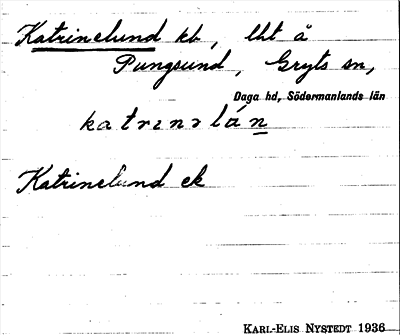 Katrinelund kb, lht å
Pungsund, Gryts sn,
Daga hd, Södermanlands län
katrinəlán
Katrinelund ek
KARL-ELIS NYSTEDT 1936